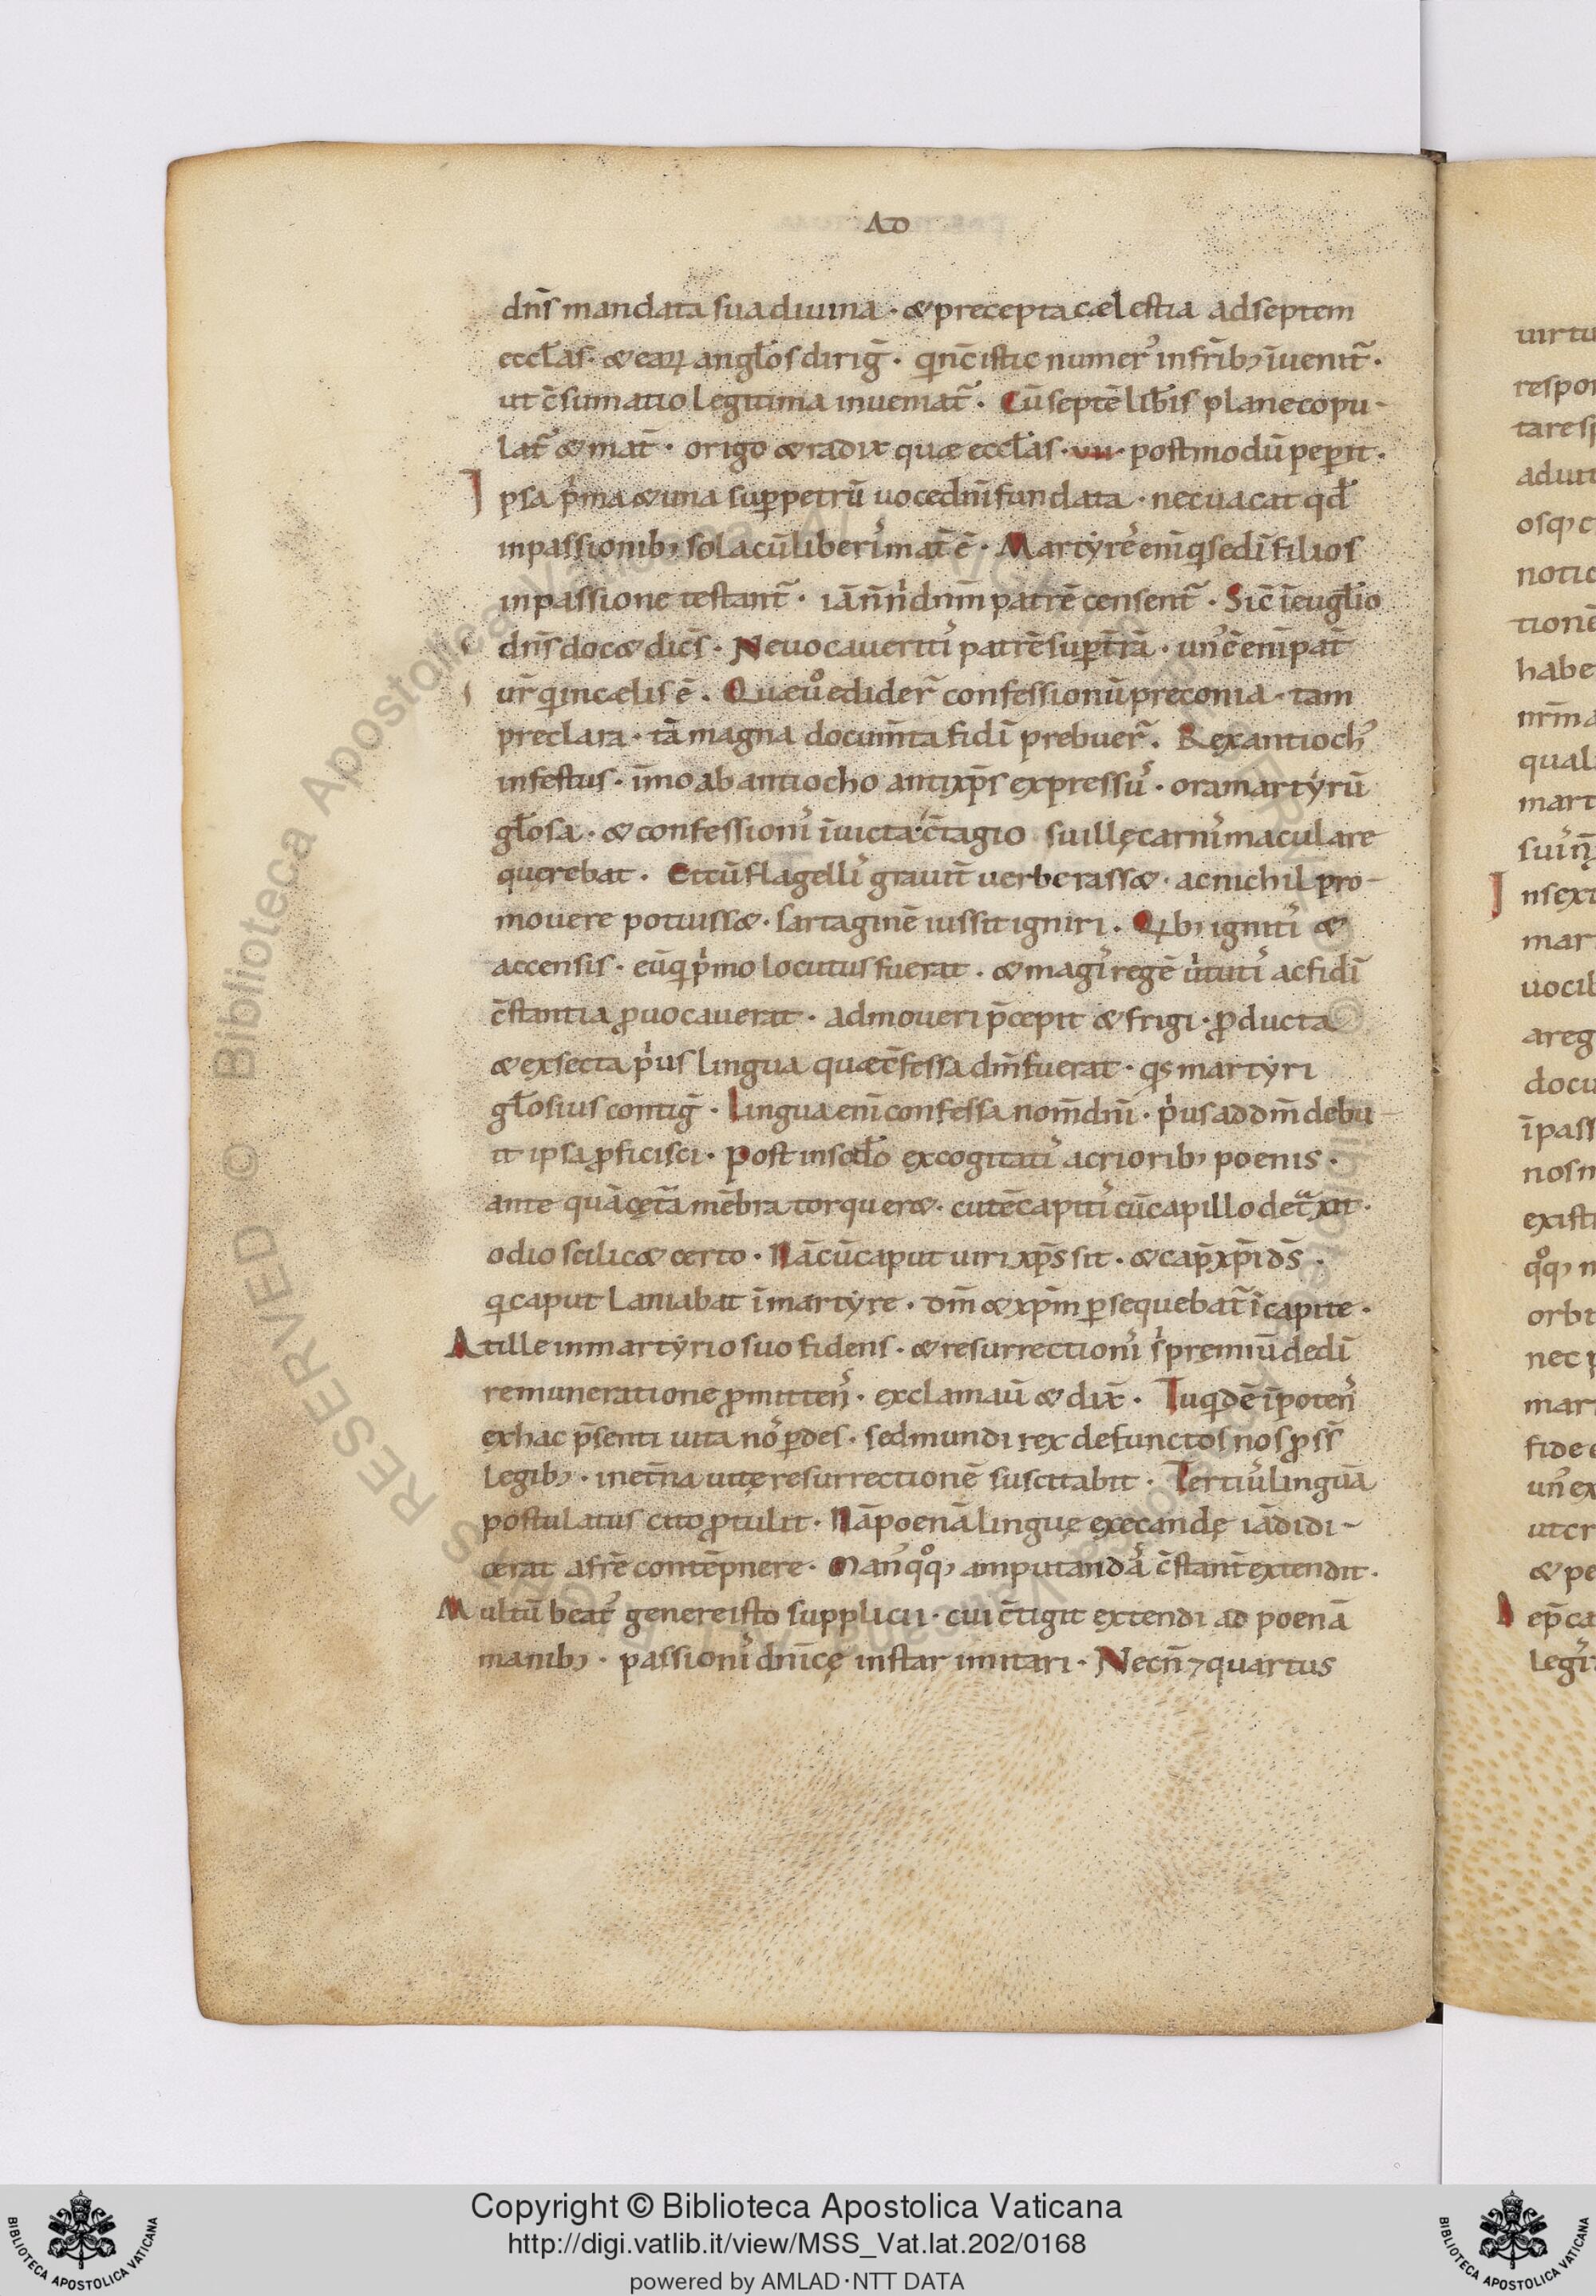 AD
dn̄s mandata sua diuina · & precepta cælestia ad septem
eccl̄as · & earꝝ angl̄os dirig̃ · qi nc̄ istic numer᾽ in fr̄ib; īuenit̃ ·
ut c̄sumatio legitima inueniat̃ · Cū septē lib̄is plane copu-
lat᾽ & mat̃ · origo & radix quæ eccl̄as · vii · postmodū peꝑit ·
Ipsa p̓ma & una suꝑ petrū uoce dn̄i fundata · nec uacat qd̄
in passionib; sol a cū liberi᾽ mat̃ ē · Martyrē enī q se dī filios
in passione testant̃ · iā n̄ n᾽ dnm̄ patrē censent̃ · Sic̄ ī eugl̄io
dn̄s doc& dic̄s · Ne uocaueriti᾽ patrē suꝑ t̄rā · un᾽ ē enī pat̃
ur̄ qi in cælis ē · Quæ uo᾽ edider̃ confessionū preconia · tam
preclara · tā magna docum̄ta fidī prebuer̃ · Rex antioch᾽
infestus · īmo ab antiocho antixp̄s expressu᾽ · ora martyrū
gl̄osa · & confessioni᾽ īuicta · c̄tagio suillę carni᾽ maculare
querebat · Et cū flagelli᾽ grauit̃ uerberass& · ac nichil pro-
mouere potuiss& · sartaginē iussit igniri · Qib; igniti᾽ &
accensis · eū qi p̓mo locutus fuerat · & magi᾽ regē u᾽tuti᾽ ac fidī
c̄stantia ꝓuocauerat · admoueri p̄cepit & frigi · ꝓducta
& exsecta p᾽us lingua quæ c̄fessa dm̄ fuerat · qs martyri
gl̄osius contig̃ · Lingua enī confessa nom̄ dnī · p᾽us ad dm̄ debu-
it ipsa ꝓficisci · Post in scd̄o excogitati᾽ acriorib; poenis ·
ante quā cęt̃a mēbra torquer& · cutē capiti᾽ cū capillo detͣxit ·
odio scilic& certo · Nā cū caput uiri xp̄s sit · & cap̄ xp̄i ds̄ ·
qi caput laniabat ī martyre · dm̄ & xp̄m ꝑsequebat̃ ī capite ·
At ille in martyrio suo fidens · & resurrectioni᾽ s᾽ premiū de dī
remuneratione ꝓmitten᾽ · exclamau̅ & dix̃ · Tu qdē īpoten᾽
ex hac p̄senti uita no᾽ ꝑdes · sed mundi rex defunctos nos ꝓ ss̄
legib; · in et̃na uitę resurrectionē suscitabit · Tertiu᾽ linguā
postulatus cito ꝓtulit · Nā poenā linguę execandę iā didi-
cerat a fr̄e contēpnere · Man᾽ qoq; amputanda᾽ c̄stant̃ extendit ·
Multū beat᾽ genere isto supplicii · cui c̄tigit extendi ad poenā
manib; · passioni᾽ dn̄icę instar imitari · Necn̄ ⁊ quartus
Copyright © Biblioteca Apostolica Vaticana
http://digi.vatlib.it/view/MSS_Vat.lat.202/0168
powered by AMLAD·NTT DATA